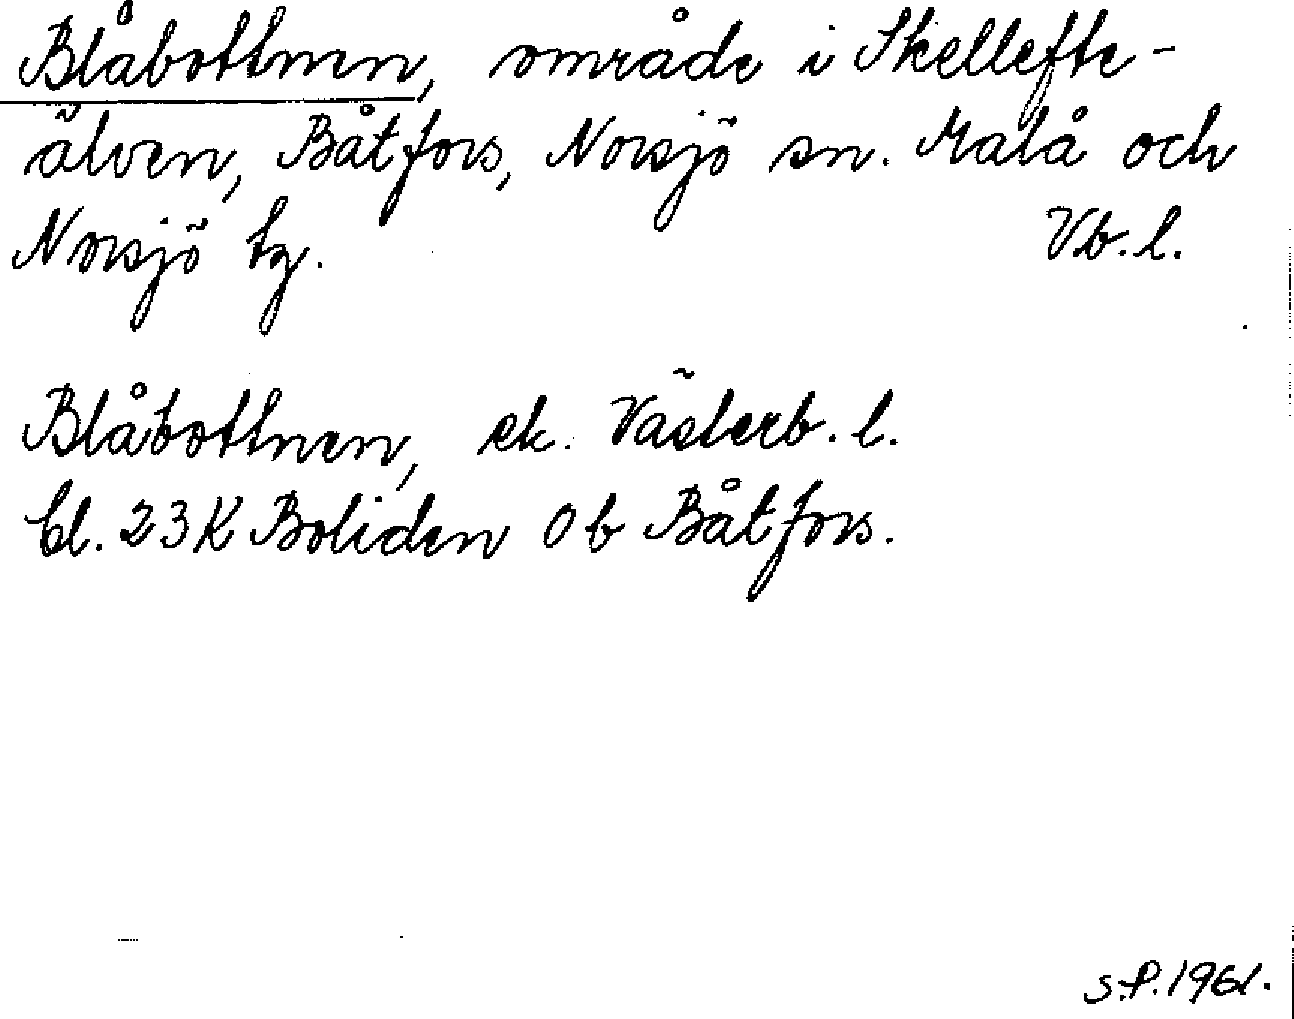 Blåbottnen, område i Skellefte-
älven, Båtfors, Norsjö sn. Malå och
Norsjö tg. Vb. l.
Blåbottnen, ek. Västerb. l.
bl. 23K Boliden 0b Båtfors.
S.P. 1961.